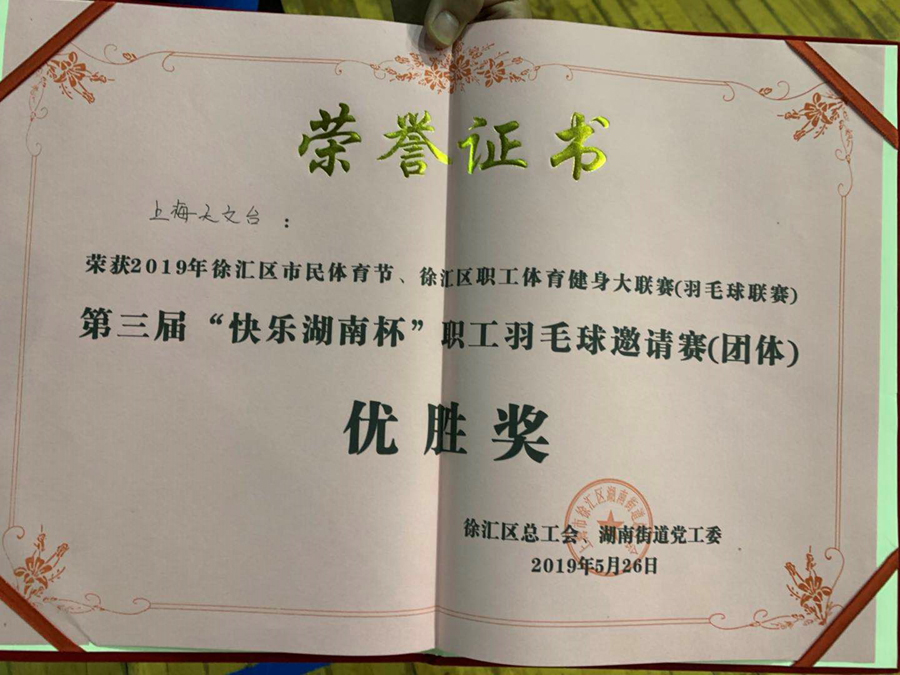 荣誉证书
上海天文台：
荣获2019年徐汇区市民体育节、徐汇区职工体育健身大联赛(羽毛球联赛)
第三届“快乐湖南杯”职工羽毛球邀请赛(团体)
优胜奖
徐汇区总工会、湖南街道党工委
2019年5月26日